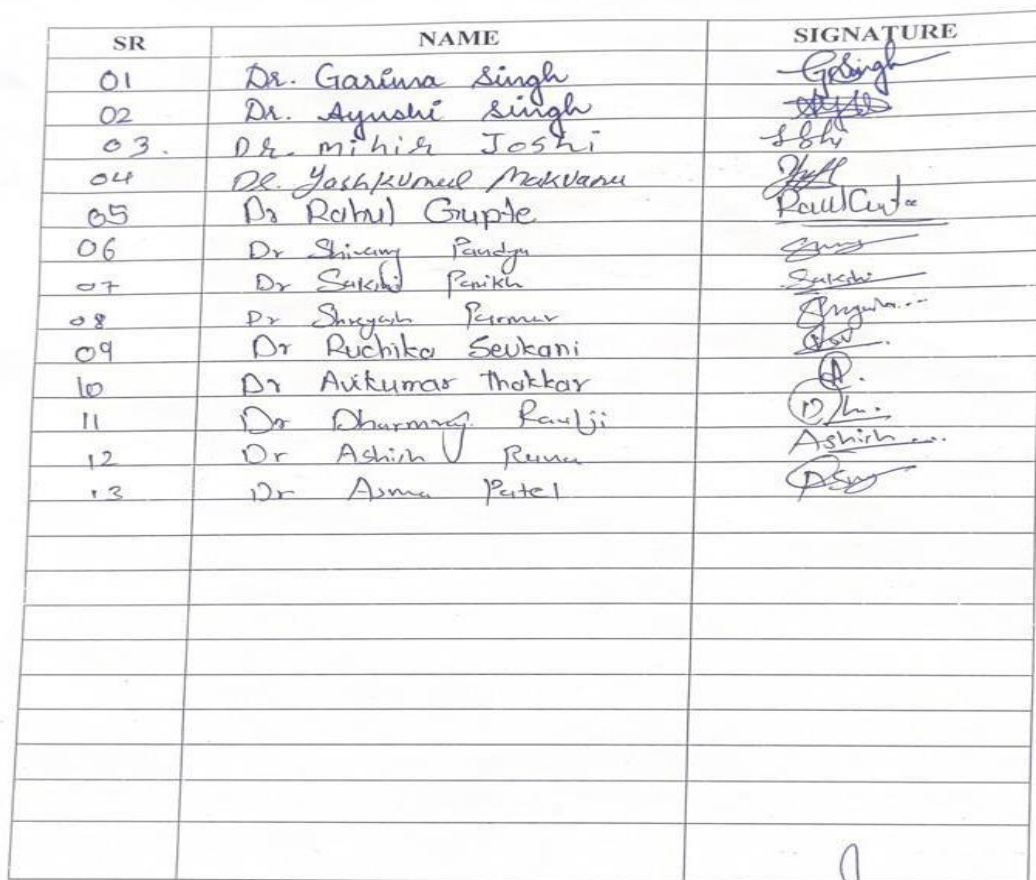 SR NAME SIGNATURE
01 Dr. Garima Singh GSingh
02 Dr. Ayushi Singh
03. DR. mihir Joshi
04 Dr. Yashkumar Makvana
05 Dr Rahul Gupte
06 Dr Shivamg Pandya
07 Dr Sakshi Parikh Sakshi
08 Dr Shreyash Parmar
09 Dr Ruchika Sevkani
10 Dr Avikumar Thakkar A.
11 Dr Dharmraj Raulji
12 Dr Ashish Rana Ashish
13 Dr Asma Patel